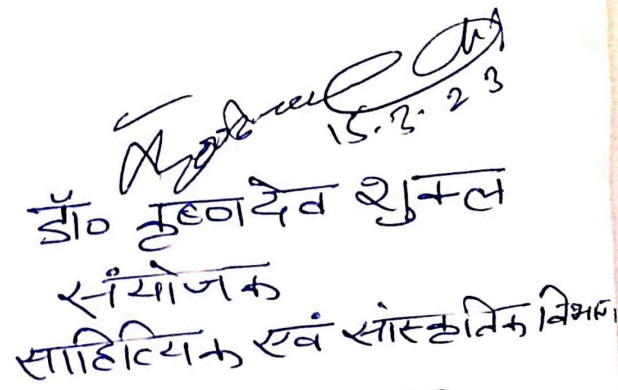 15.3.23
डॉ० कृष्णदेव शुक्ल
संयोजक
साहित्यिक एवं सांस्कृतिक विभाग